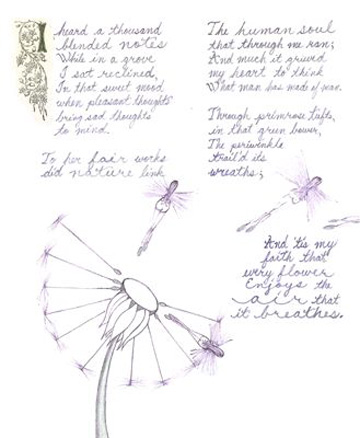 I heard a thousand
blended notes
While in a grove
I sat reclined,
In that sweet mood
when pleasant thoughts
bring sad thoughts
to mind.
To her fair works
did nature link
The human soul
that through me ran;
And much it grieved
my heart to think
What man has made of man.
Through primrose tufts,
in that green bower,
The periwinkle
trail'd its
wreaths;
And 'tis my
faith that
every flower
Enjoys the
air that
it breathes.